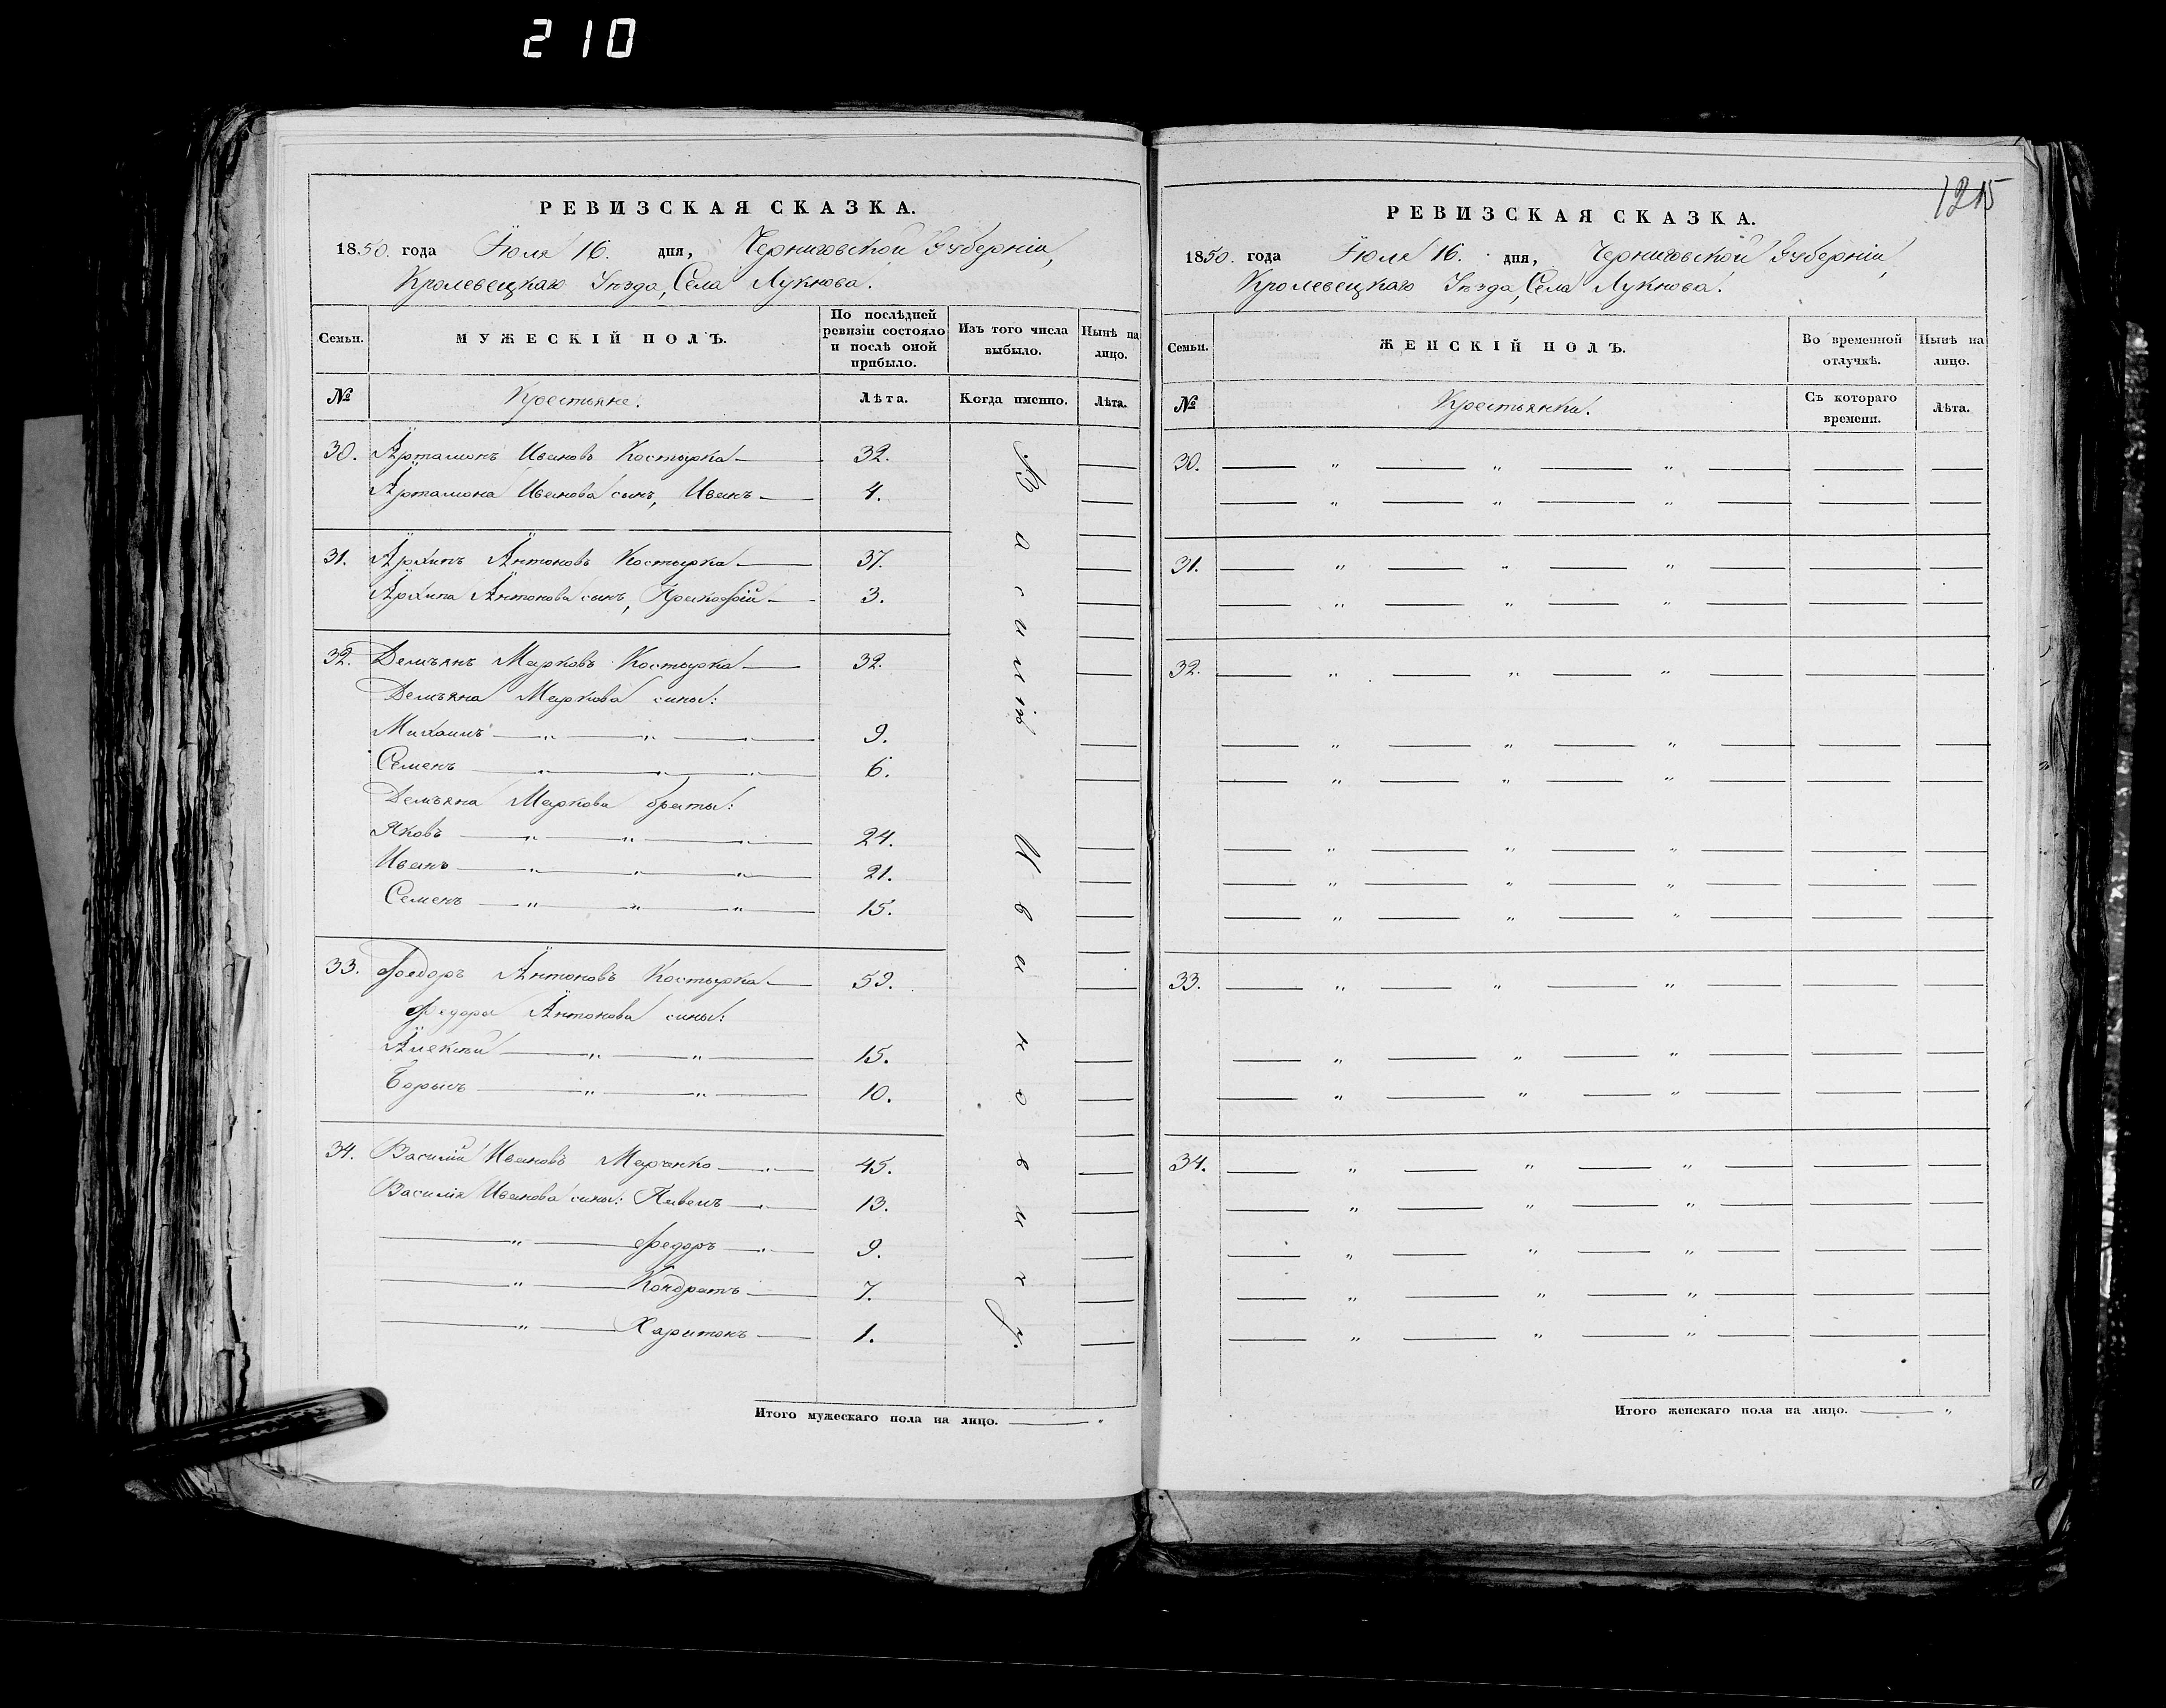 210
РЕВИЗСКАЯ СКАЗКА.
1850. года Іюля 16. дня, Черниговской Губерніи,
Кролевецкаго Уѣзда, Села Лукнова.
Семьи.
МУЖЕСКІЙ ПОЛЪ.
По послѣдней ревизіи состояло и послѣ оной прибыло.
Изъ того числа выбыло.
Нынѣ на лицо.
№
Крестьяне.
Лѣта.
Когда именно.
Лѣта.
30. Артамонъ Ивановъ Костырка 32.
Артамона Иванова сынъ, Иванъ 4.
31. Архипъ Антоновъ Костырка 37.
Архипа Антонова сынъ, Прокофій 3.
32. Демьянъ Марковъ Костырка 32.
Демьяна Маркова сины:
Михаилъ " " " 9.
Семенъ " " " 6.
Демьяна Маркова браты:
Яковъ " " " 24.
Иванъ " " " 21.
Семенъ " " " 15.
33. Федоръ Антоновъ Костырка 59.
Федора Антонова сины:
Алексѣй " " 15.
Борысъ " " 10.
34. Василій Ивановъ Марченко " 45.
Василія Иванова сины: Павелъ " 13.
" Федоръ " 9.
" Кондратъ 7.
" Харитонъ 1.
Василій Ивановику.
Итого мужескаго пола на лицо. "
1215
РЕВИЗСКАЯ СКАЗКА.
1850. года Іюля 16. дня, Черниговской Губерніи,
Кролевецкаго Уѣзда, Села Лукнова.
Семьи.
ЖЕНСКІЙ ПОЛЪ.
Во временной отлучкѣ.
Нынѣ на лицо.
№
Крестьянки.
Съ котораго времени.
Лѣта.
30. " " "
" " "
31. " " "
" " "
32. " " "
" " "
" " "
" " "
" " "
" " "
33. " " "
" " "
" " "
34. " " "
" " "
" " "
" " "
" " "
Итого женскаго пола на лицо. "